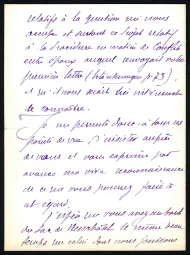 relatifs à la question qui nous
occupe et surtout ce Projet relatif
à la Procédure en matière de Conflit
entre époux auquel renvoyait votre
première lettre (p. 23).
et qu'il nous serait très intéressant
de connaître.
Je me permets donc, à tous ces
points de vue, d'insister auprès
de vous et vous exprime par
avance ma vive reconnaissance
de ce que vous pourrez faire à
cet égard.
J'espère que vous avez au bord
du Lac de Neuchâtel le même beau
temps que celui dont nous jouissons